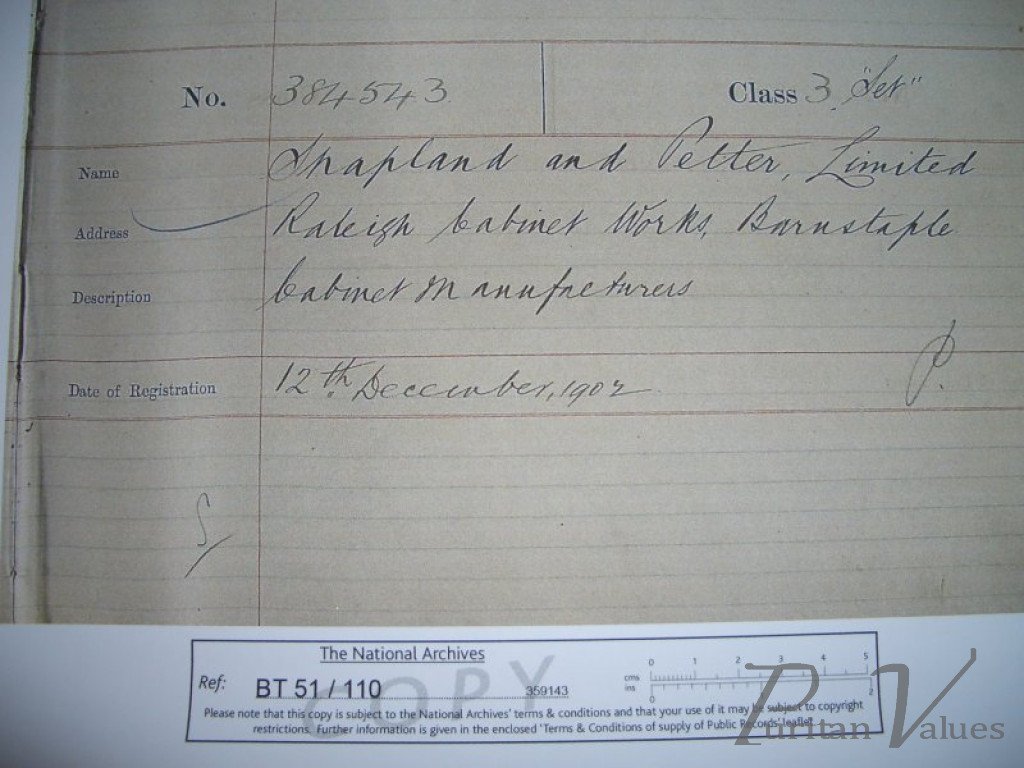 No. 384543 Class 3 "Set"
Name Shapland and Petter, Limited
Address Raleigh Cabinet Works, Barnstaple
Description Cabinet Manufacturers
P.
Date of Registration 12th December, 1902
S/
The National Archives
Ref: BT 51 / 110 359143
COPY
cms 0 1 2 3 4 5
ins 0 2
Please note that this copy is subject to the National Archives' terms & conditions and that your use of it may be subject to copyright
restrictions. Further information is given in the enclosed 'Terms & Conditions of supply of Public Records' leaflet
Puritan Values